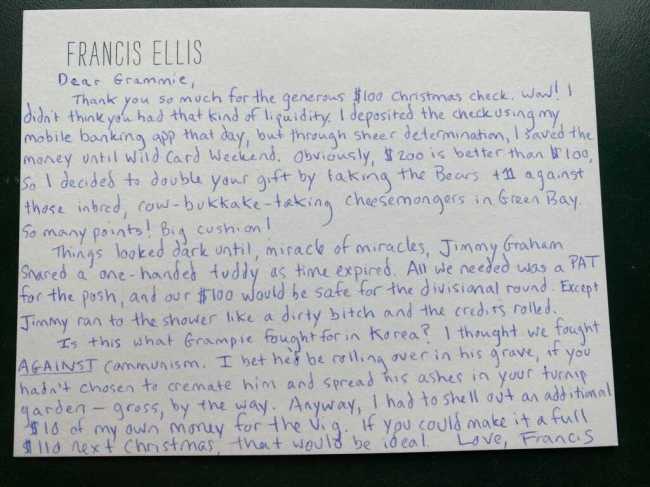 FRANCIS ELLIS
Dear Grammie,
Thank you so much for the generous $100 Christmas check. Wow! I
didn't think you had that kind of liquidity. I deposited the check using my
mobile banking app that day, but through sheer determination, I saved the
money until Wild Card Weekend. Obviously, $200 is better than $100,
so I decided to double your gift by taking the Bears +11 against
those inbred, cow-bukkake-taking cheesemongers in Green Bay.
So many points! Big cushion!
Things looked dark until, miracle of miracles, Jimmy Graham
snared a one-handed tuddy as time expired. All we needed was a PAT
for the push, and our $100 would be safe for the divisional round. Except
Jimmy ran to the shower like a dirty bitch and the credits rolled.
Is this what Grampie fought for in Korea? I thought we fought
AGAINST communism. I bet he'd be rolling over in his grave, if you
hadn't chosen to cremate him and spread his ashes in your turnip
garden — gross, by the way. Anyway, I had to shell out an additional
$10 of my own money for the vig. If you could make it a full
$110 next Christmas, that would be ideal. Love, Francis